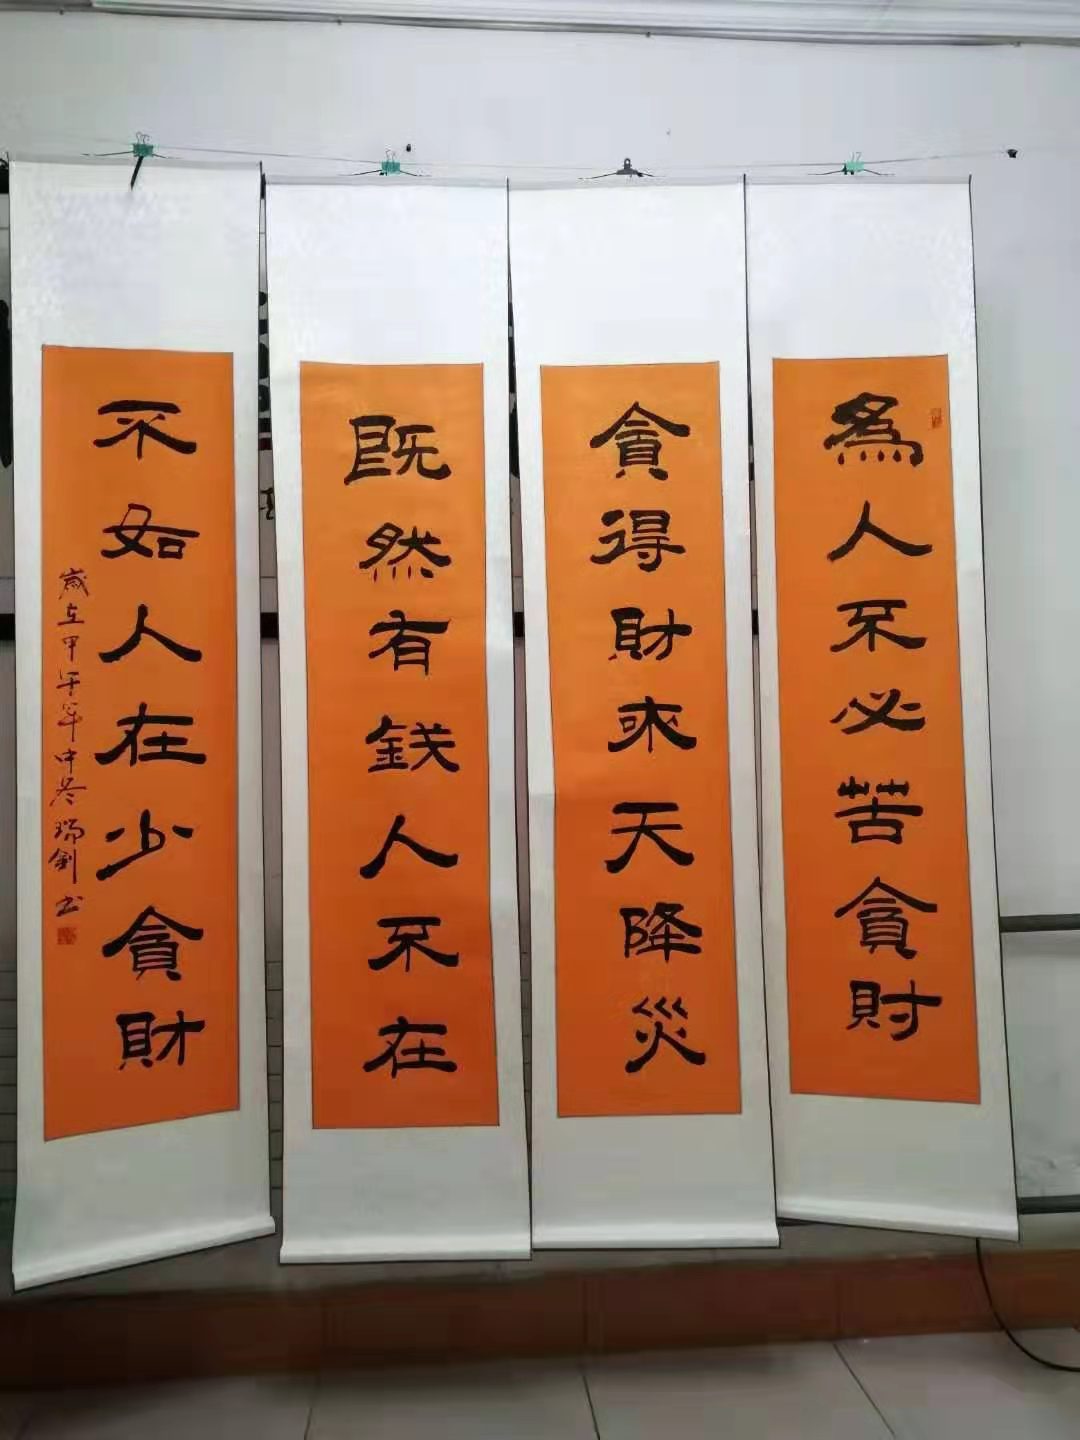 為人不必苦貪財
貪得財来天降災
既然有錢人不在
不如人在少貪財
歲在甲午年中冬瑞劍书